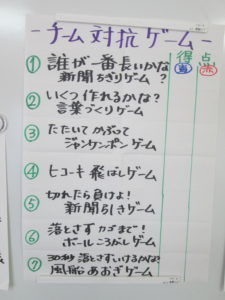 - チーム対抗ゲーム -
得点
青 赤
① 誰が一番長いかな
新聞ちぎりゲーム?
② いくつ作れるかな?
言葉づくりゲーム
③ たたいて かぶって
ジャンケンポンゲーム
④ ヒコーキ飛ばしゲーム
⑤ 切れたら負けよ!
新聞ちしきゲーム
⑥ 落とさずカゴまで!
ボールころがしゲーム
⑦ 30秒 落とさずいけるかな?
風船あおぎゲーム